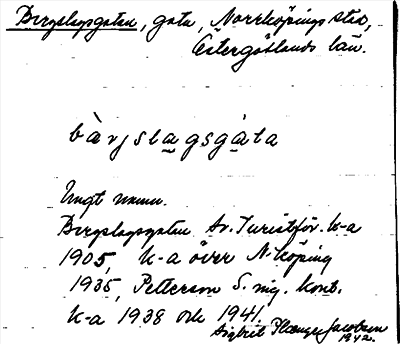 Bergslagsgatan, gata, Norrköpings stad,
Östergötlands län.
bàrjslagsgàta
Ungt namn.
Bergslagsgatan Sv. Turistför. k-a
1905, k-a över N-köping
1935, Petterson S. ing. kont.
k-a 1938 och 1941.
Sigbrit Plænge Jacobson
1942.